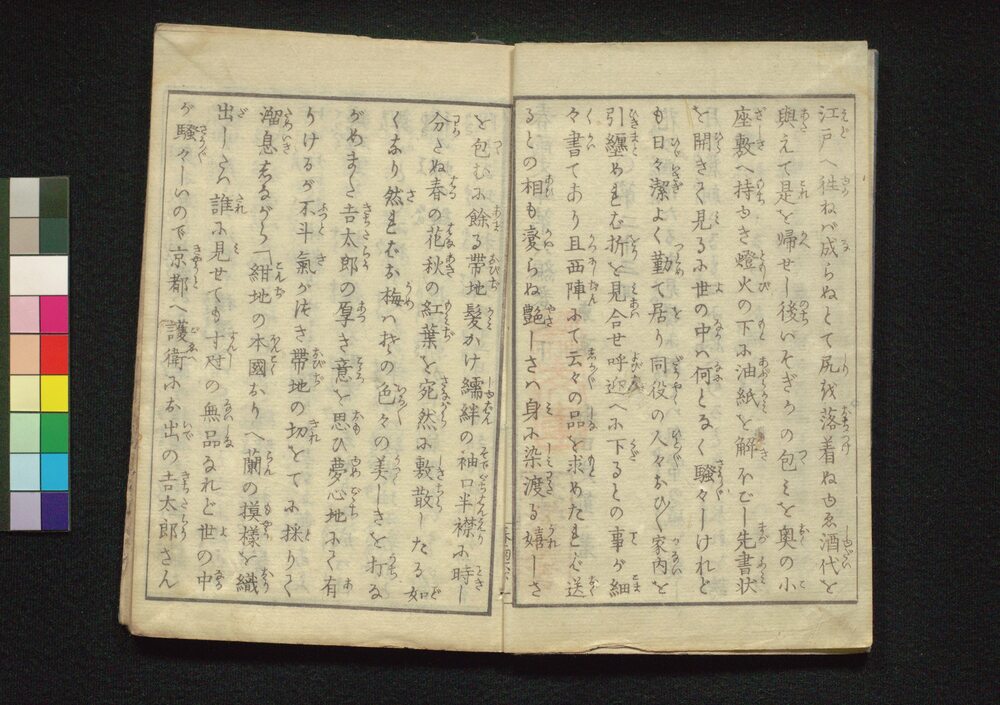 江戸へ往ねバ成らぬとて尻も落着ねもゑ酒代を
與えて是を帰せし後いそぎかの包ミを奥の小
座敷へ持ゆき燈火の下に油紙を解ほむし先書状
を開きて見るに世の中ハ何となく騒々しけれど
も日々潔よく勤て居り同役の人々おひ〳〵家内を
引纏めれば折を見合せ呼迎へに下るとの事が細
々書てあり且西陣にて云々の品を求めたれバ送
るとの相も変らぬ艶しさハ身に染渡る嬉しさ
を包むに餘る帯地髪かけ繻絆の袖口半襟に時し
分たぬ春の花秋の紅葉を宛然に敷散したる如
くなり然ればお梅ハ其の色々の美しきを打な
がめまた吉太郎の厚き意を思ひ夢心地にて有
りけるが不斗氣が付き帯地の切をてに採りて
溜息ながら「紺地の本國おりへ蘭の模様を織
出したハ誰に見せても寸対の無品なれど世の中
が騒々しいので京都へ護衛にお出の吉太郎さん